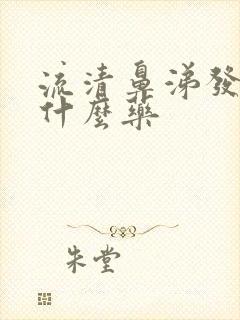 流清鼻涕發
什麼藥
朱堂